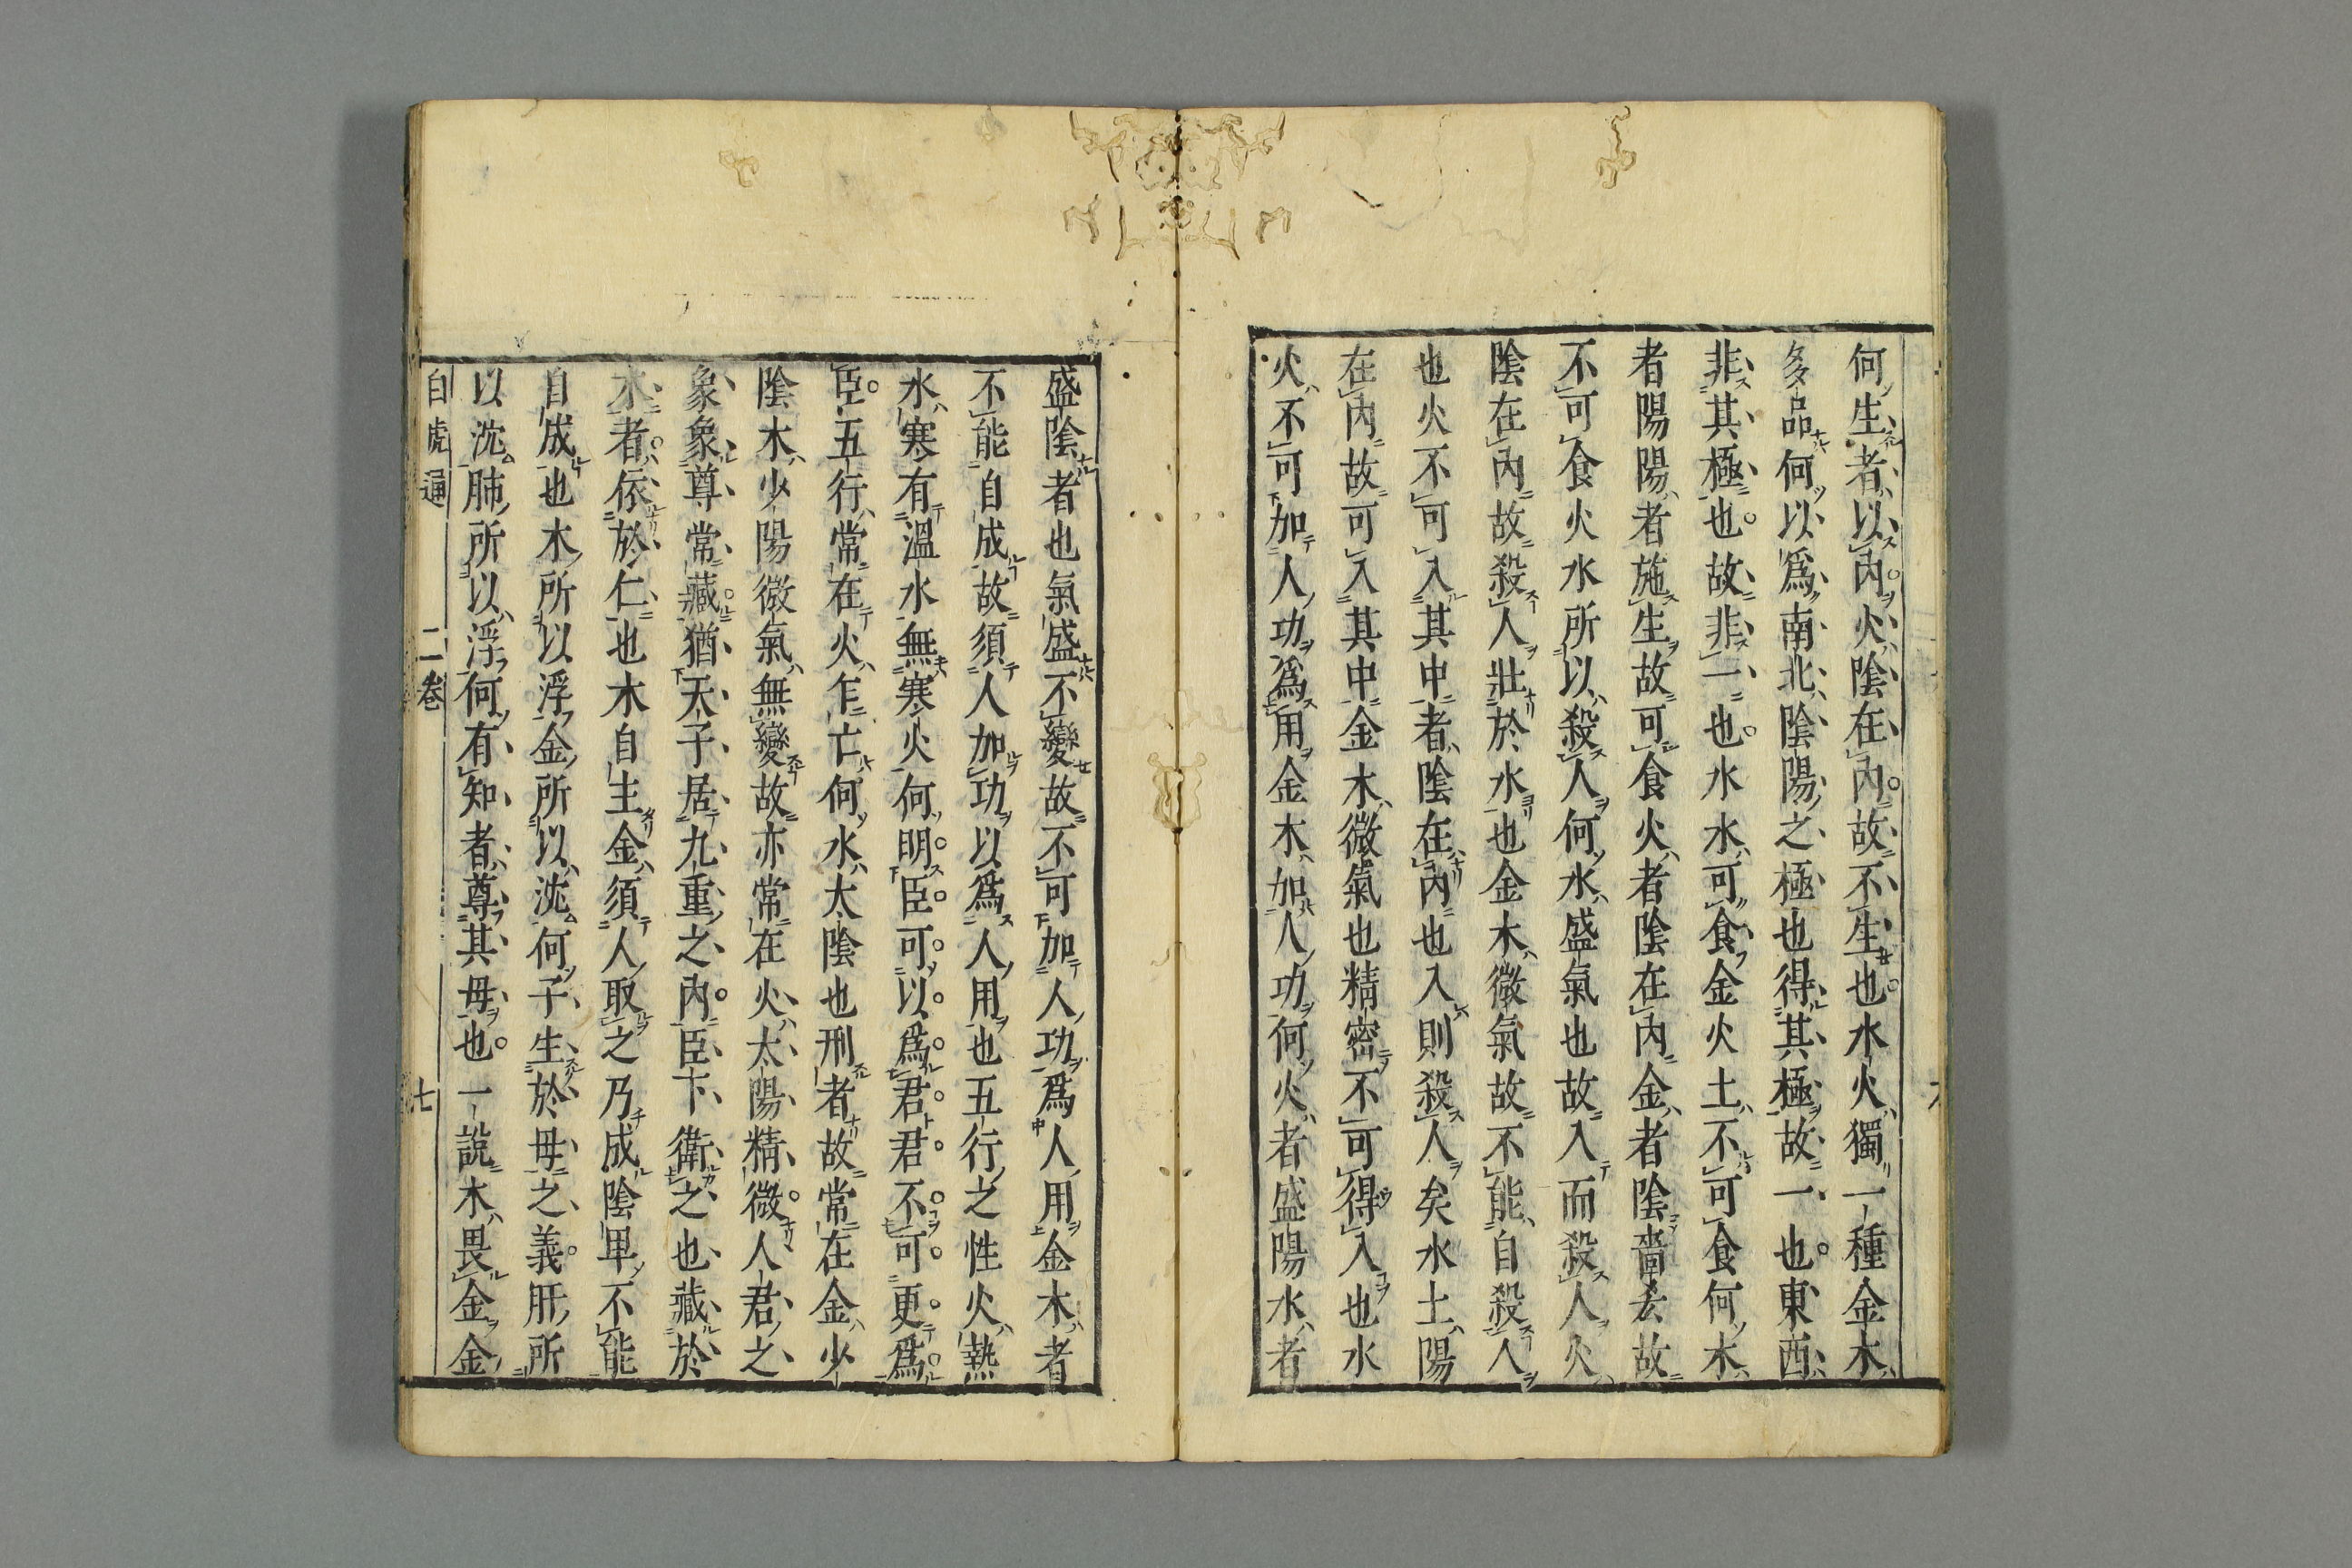 何生者以內火陰在內故不生也水火獨一種金木
多品何以爲南北陰陽之極也得其極故一也東西
非其極也故非一也水水可食金火土不可食何木
者陽陽者施生故可食火者陰在內金者陰嗇丢故
不可食火水所以殺人何水盛氣也故入而殺人火
陰在內故殺人壯於水也金木微氣故不能自殺人
也火不可入其中者陰在內也入則殺人矣水土陽
在內故可入其中金木微氣也精密不可得入也水
火不可加人功爲用金木加人功何火者盛陽水者
盛陰者也氣盛不變故不可加人功爲人用金木者
不能自成故須人加功以爲人用也五行之性火熱
水寒有溫水無寒火何明臣可以爲君君不可更爲
臣五行常在火乍亡何水太陰也刑者故常在金少
陰木少陽微氣無變故亦常在火太陽精微人君之
象象尊常藏猶天子居九重之內臣下衛之也藏於
木者依於仁也木自主金須人取之乃成陰卑不能
自成也木所以浮金所以沈何子生於母之義肝所
以沈肺所以浮何有知者尊其母也一說木畏金金
白虎通 二卷 七